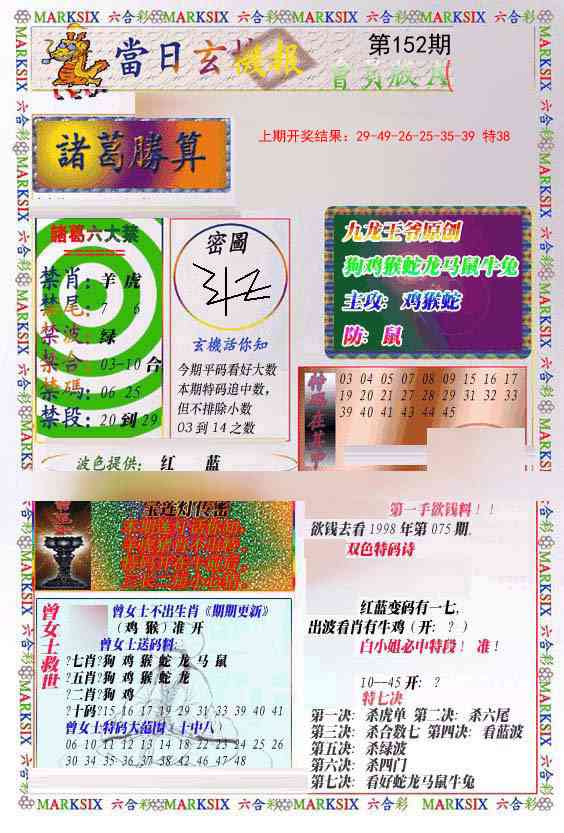 MARKSIX 六合彩 MARKSIX 六合彩 MARKSIX 六合彩 MARKSIX 六合彩
當日玄機报
第152期
諸葛勝算
上期开奖结果：29-49-26-25-35-39 特38
諸葛六大禁
禁肖：羊 虎
禁尾：7 6
禁波：绿
禁合：03-10 合
禁碼：06 25
禁段：20 到 29
密圖
玄機活你知
今期平码看好大数
本期特码追中数，
但不排除小数
03 到 14 之数
九龙王爷原创
狗鸡猴蛇龙马鼠牛兔
主攻：鸡猴蛇
防：鼠
特码在其中
03 04 05 07 08 09 15 16 17
19 20 21 27 28 29 31 32 33
39 40 41 43 44 45
波色提供： 红 蓝
宝莲灯传密
第一手欲钱料！！
欲钱去看1998年第075期.
双色特码诗
红蓝变码有一七,
出波看肖有牛鸡（开：？）
白小姐必中特段！ 准！
10—45 开：？
特七决
第一决：杀虎单 第二决：杀六尾
第三决：杀合数七 第四决：看蓝波
第五决：杀绿波
第六决：杀四门
第七决：看好蛇龙马鼠牛兔
曾女士救世
曾女士不出生肖《期期更新》
（鸡 猴）准 开
曾女士送码料:
?七肖?狗 鸡 猴 蛇 龙 马 鼠
?五肖?狗 鸡 猴 蛇 龙
?二肖?狗 鸡
?十码?15 16 17 19 29 31 33 39 40 41
曾女士特码大范围（十中八）
06 10 11 12 13 14 18 22 23 24 25 26
30 34 35 36 37 38 42 46 47 48
MARKSIX 六合彩 MARKSIX 六合彩 MARKSIX 六合彩 MARKSIX 六合彩